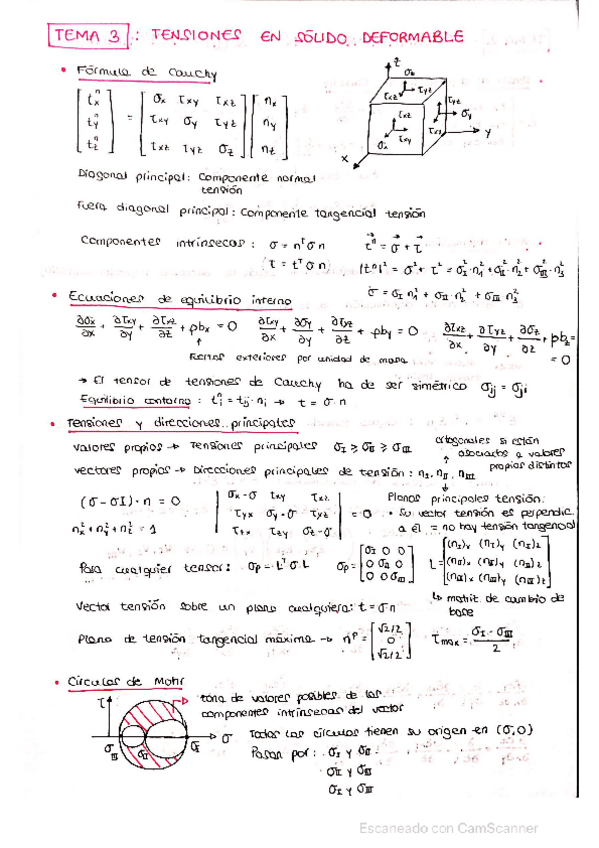 TEMA 3 : TENSIONES EN SÓLIDO DEFORMABLE
• Fórmula de Cauchy
[t_x^n t_y^n t_z^n] = [σx τxy τxz; τxy σy τyz; τxz τyz σz] [nx ny nz]
z σz τxz τyz τyz σy τxz τxz τxy σx y x
Diagonal principal: Componente normal
tensión
Fuera diagonal principal: Componente tangencial tensión
Componentes intrínsecas : σ = nᵗσ n t⃗ⁿ = σ⃗ + τ⃗
τ = tᵗσ n |tⁿ|² = σ² + τ² = σI²·n1² + σII²·n2² + σIII²·n3²
σ = σI n1² + σII·n2² + σIII n3²
• Ecuaciones de equilibrio interno
∂σx/∂x + ∂τxy/∂y + ∂τxz/∂z + ρbx = 0 ∂τxy/∂x + ∂σy/∂y + ∂τyz/∂z + ρby = 0 ∂τxz/∂x + ∂τyz/∂y + ∂σz/∂z + ρbz = 0
↑ Fuerzas exteriores por unidad de masa
→ El tensor de tensiones de Cauchy ha de ser simétrico σij = σji
Equilibrio contorno : ti^n = tij·nj → t = σ·n
• Tensiones y direcciones principales
valores propios → Tensiones principales σI ≥ σII ≥ σIII
ortogonales si están
asociados a valores
propios distintos
vectores propios → Direcciones principales de tensión : nI, nII, nIII
(σ - σI)·n = 0
nx² + ny² + nz² = 1
|σx-σ τxy τxz; τyx σy-σ τyz; τzx τzy σz-σ| = 0
Planos principales tensión:
• Su vector tensión es perpendic.
a él = no hay tensión tangencial
Para cualquier tensor: σp = Lᵀσ L σp = [σI 0 0; 0 σII 0; 0 0 σIII] L = [(nI)x (nI)y (nI)z; (nII)x (nII)y (nII)z; (nIII)x (nIII)y (nIII)z]
↳ matriz de cambio de
base
Vector tensión sobre un plano cualquiera: t = σn
Plano de tensión tangencial máxima → nᵖ = [√2/2 0 √2/2] τmax = (σI - σIII)/2
• Círculos de Mohr
τ σ σIII σII σI
zona de valores posibles de las
componentes intrínsecas del vector
Todos los círculos tienen su origen en (σ,0)
Pasan por : σI y σII
σII y σIII
σI y σIII
Escaneado con CamScanner